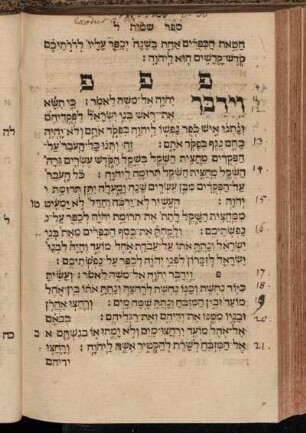 ספר שמות ל
חטאת הכפרים אחת בשנה יכפר עליו לדרתיכם
קדש־קדשים הוא ליהוה׃
פ פ פ
וידבר יהוה אל־משה לאמר׃ כי תשא
את־ראש בני־ישראל לפקדיהם
ונתנו איש כפר נפשו ליהוה בפקד אתם ולא־יהיה
בהם נגף בפקד אתם׃ זה יתנו כל־העבר על־
הפקדים מחצית השקל בשקל הקדש עשרים גרה
השקל מחצית השקל תרומה ליהוה׃ כל העבר
על־הפקדים מבן עשרים שנה ומעלה יתן תרומת י
יהוה׃ העשיר לא־ירבה והדל לא ימעיט
ממחצית השקל לתת את־תרומת יהוה לכפר על־נ
נפשתיכם׃ ולקחת את־כסף הכפרים מאת בני
ישראל ונתת אתו על־עבדת אהל מועד והיה לבני
ישראל לזכרון לפני יהוה לכפר על־נפשתיכם׃
פ וידבר יהוה אל־משה לאמר׃ ועשית
כיור נחשת וכנו נחשת לרחצה ונתת אתו בין־אהל
מועד ובין המזבח ונתת שמה מים׃ ורחצו אהרן
ובניו ממנו את־ידיהם ואת־רגליהם׃ בבאם
אל־אהל מועד ירחצו־מים ולא ימתו או בגשתם א
אל־המזבח לשרת להקטיר אשה ליהוה׃ ורחצו
ידיהם
לה
ל
כה
12.
13.
14.
15.
16.
17.
18.
19.
20.
21.